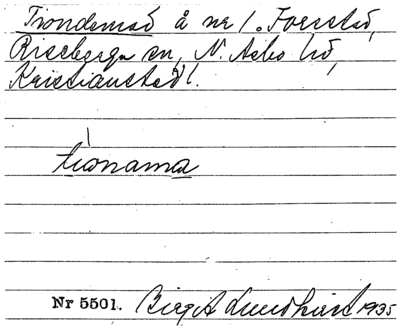 Tiondemad å nr 1. Forestad,
Riseberga sn, N. Åsbo hd,
Kristianstad l.
tiọnama
Nr 5501. Birgit Lundkvist 1935